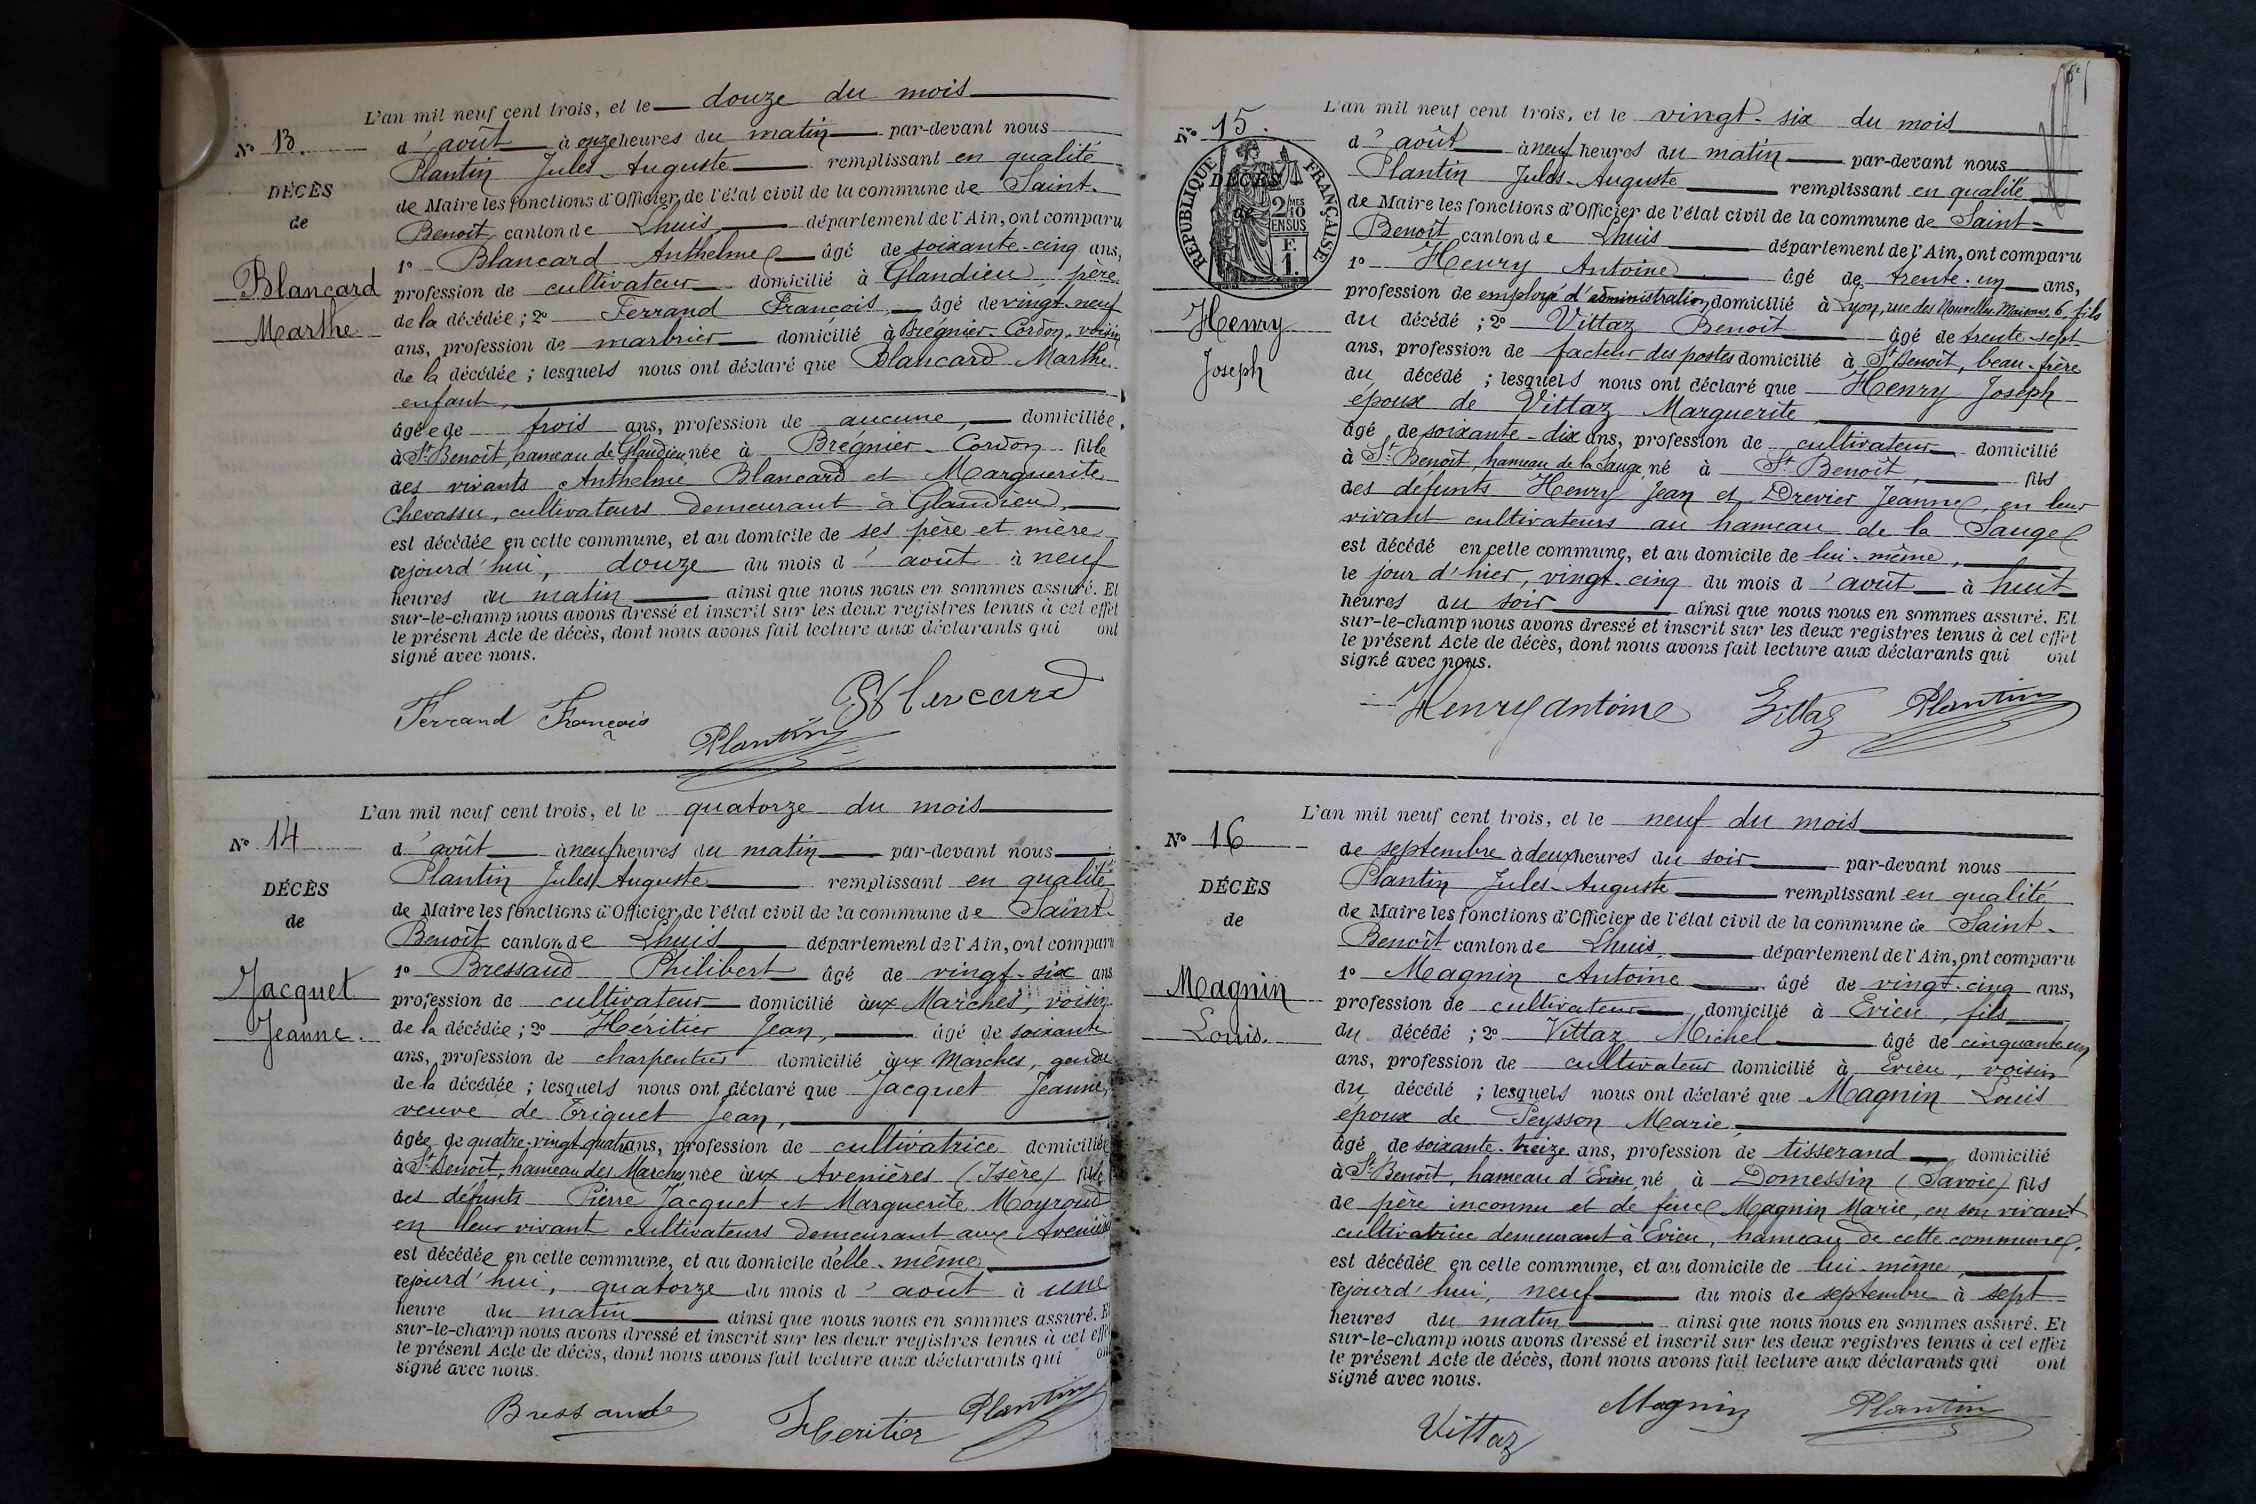 L'an mil neuf cent trois, et le douze du mois
N° 13.
d'août à onze heures du matin par-devant nous
Plantin Jules-Auguste remplissant en qualité
DÉCÈS
de Maire les fonctions d'Officier de l'état civil de la commune de Saint-
de
Benoît canton de Lhuis département de l'Ain, ont comparu
1° Blancard Anthelme âgé de soixante-cinq ans,
Blancard
profession de cultivateur domicilié à Glandieu, père
Marthe
de la décédée ; 2° Ferrand François, âgé de vingt-neuf
ans, profession de marbrier domicilié à Bregnier-Cordon, voisin
de la décédée ; lesquels nous ont déclaré que Blancard Marthe
enfant,
âgée de trois ans, profession de aucune, domiciliée
à St Benoît, hameau de Glandieu née à Bregnier-Cordon fille
des vivants Anthelme Blancard et Marguerite
Chevassu, cultivateurs demeurant à Glandieu,
est décédée en cette commune, et au domicile de ses père et mère
cejourd'hui, douze du mois d'août à neuf
heures du matin ainsi que nous nous en sommes assuré. Et
sur-le-champ nous avons dressé et inscrit sur les deux registres tenus à cet effet
le présent Acte de décès, dont nous avons fait lecture aux déclarants qui ont
signé avec nous.
Ferrand François
Plantin
L'an mil neuf cent trois, et le quatorze du mois
N° 14
d'août à neuf heures du matin par-devant nous
Plantin Jules Auguste remplissant en qualité
DÉCÈS
de Maire les fonctions d'Officier de l'état civil de la commune de Saint-
de
Benoît canton de Lhuis département de l'Ain, ont comparu
1° Bressaud Philibert âgé de vingt-six ans
Jacquet
profession de cultivateur domicilié aux Marches, voisin
Jeanne.
de la décédée ; 2° Héritier Jean, âgé de soixante
ans, profession de charpentier domicilié aux Marches, gendre
de la décédée ; lesquels nous ont déclaré que Jacquet Jeanne,
veuve de Triquet Jean,
âgée de quatre-vingt-quatre ans, profession de cultivatrice domiciliée
à St Benoît, hameau des Marches née aux Avenières (Isère) fille
des défunts Pierre Jacquet et Marguerite Moyroud
en leur vivant cultivateurs demeurant aux Avenières
est décédée en cette commune, et au domicile d'elle-même
cejourd'hui, quatorze du mois d'août à une
heure du matin ainsi que nous nous en sommes assuré. Et
sur-le-champ nous avons dressé et inscrit sur les deux registres tenus à cet effet
le présent Acte de décès, dont nous avons fait lecture aux déclarants qui ont
signé avec nous.
Bressaud
Heritier
Plantin
L'an mil neuf cent trois, et le vingt-six du mois
N° 15.
d'août à neuf heures du matin par-devant nous
Plantin Jules-Auguste remplissant en qualité
RÉPUBLIQUE FRANÇAISE
2/10MES EN SUS
F. 1.
DÉCÈS
de Maire les fonctions d'Officier de l'état civil de la commune de Saint-
de
Benoît canton de Lhuis département de l'Ain, ont comparu
1° Henry Antoine âgé de trente-un ans,
profession de employé d'administration domicilié à Lyon, rue des Nouvelles Maisons, 6, fils
Henry
du décédé ; 2° Vittaz Benoit âgé de trente-sept
Joseph
ans, profession de facteur des postes domicilié à St Benoît, beau-frère
du décédé ; lesquels nous ont déclaré que Henry Joseph
époux de Vittaz Marguerite
âgé de soixante-dix ans, profession de cultivateur domicilié
à St Benoît, hameau de la Sauge né à St Benoît, fils
des défunts Henry Jean et Drevier Jeanne, en leur
vivant cultivateurs au hameau de la Sauge
est décédé en cette commune, et au domicile de lui-même,
le jour d'hier, vingt-cinq du mois d'août à huit
heures du soir ainsi que nous nous en sommes assuré. Et
sur-le-champ nous avons dressé et inscrit sur les deux registres tenus à cet effet
le présent Acte de décès, dont nous avons fait lecture aux déclarants qui ont
signé avec nous.
Henry antoine
Vittaz
Plantin
L'an mil neuf cent trois, et le neuf du mois
N° 16
de septembre à deux heures du soir par-devant nous
Plantin Jules-Auguste remplissant en qualité
DÉCÈS
de Maire les fonctions d'Officier de l'état civil de la commune de Saint-
de
Benoît canton de Lhuis, département de l'Ain, ont comparu
1° Magnin Antoine âgé de vingt-cinq ans,
Magnin
profession de cultivateur domicilié à Evieu, fils
Louis.
du décédé ; 2° Vittaz Michel âgé de cinquante-un
ans, profession de cultivateur domicilié à Evieu, voisin
du décédé ; lesquels nous ont déclaré que Magnin Louis
époux de Peysson Marie,
âgé de soixante-treize ans, profession de tisserand domicilié
à St Benoît, hameau d'Evieu, né à Domessin (Savoie) fils
de père inconnu et de feue Magnin Marie, en son vivant
cultivatrice demeurant à Evieu, hameau de cette commune.
est décédée en cette commune, et au domicile de lui-même,
cejourd'hui, neuf du mois de septembre à sept
heures du matin ainsi que nous nous en sommes assuré. Et
sur-le-champ nous avons dressé et inscrit sur les deux registres tenus à cet effet
le présent Acte de décès, dont nous avons fait lecture aux déclarants qui ont
signé avec nous.
Vittaz
Magnin
Plantin